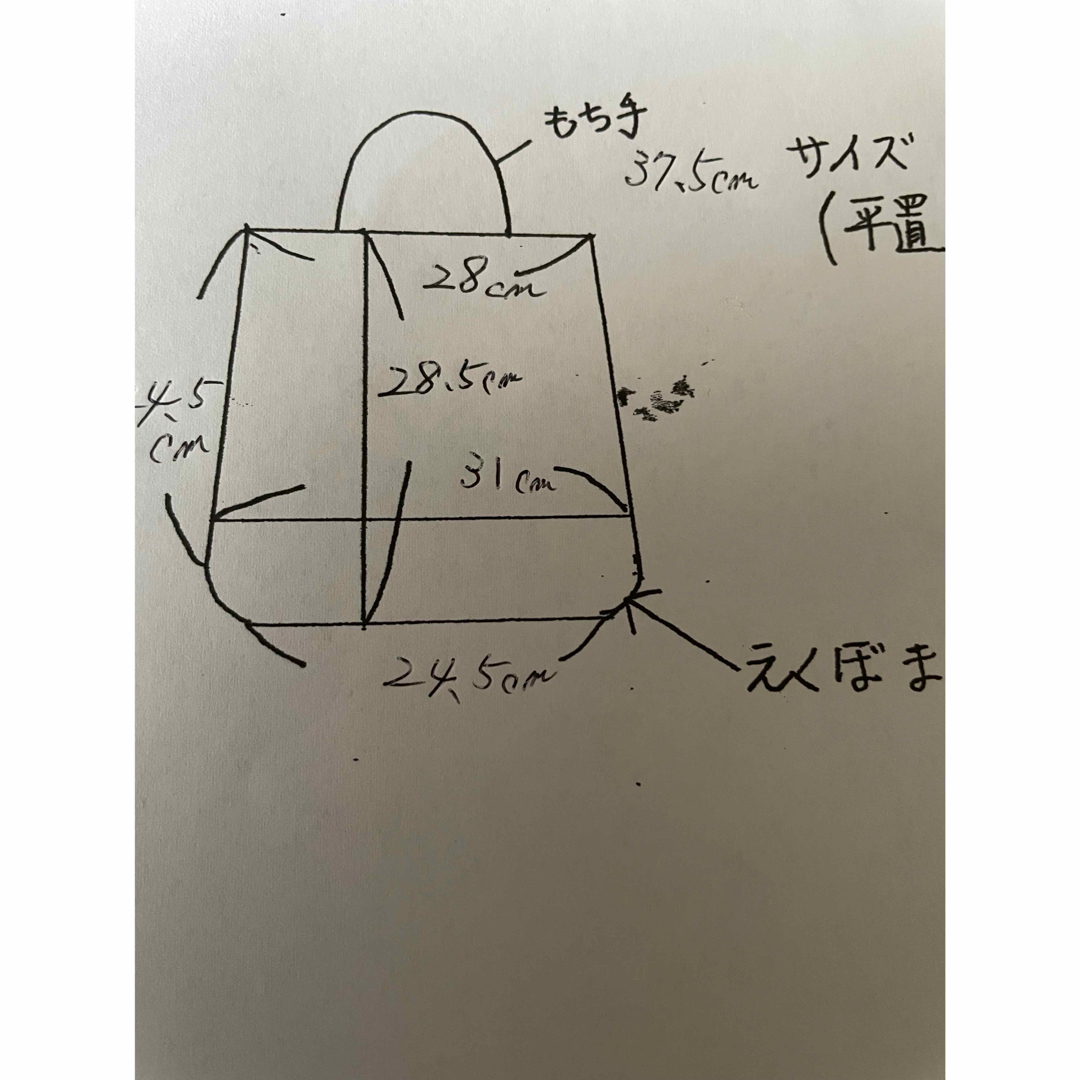 もち手
37.5cm
サイズ
(平置
28cm
28.5cm
4.5
cm
31cm
24.5cm
えくぼま